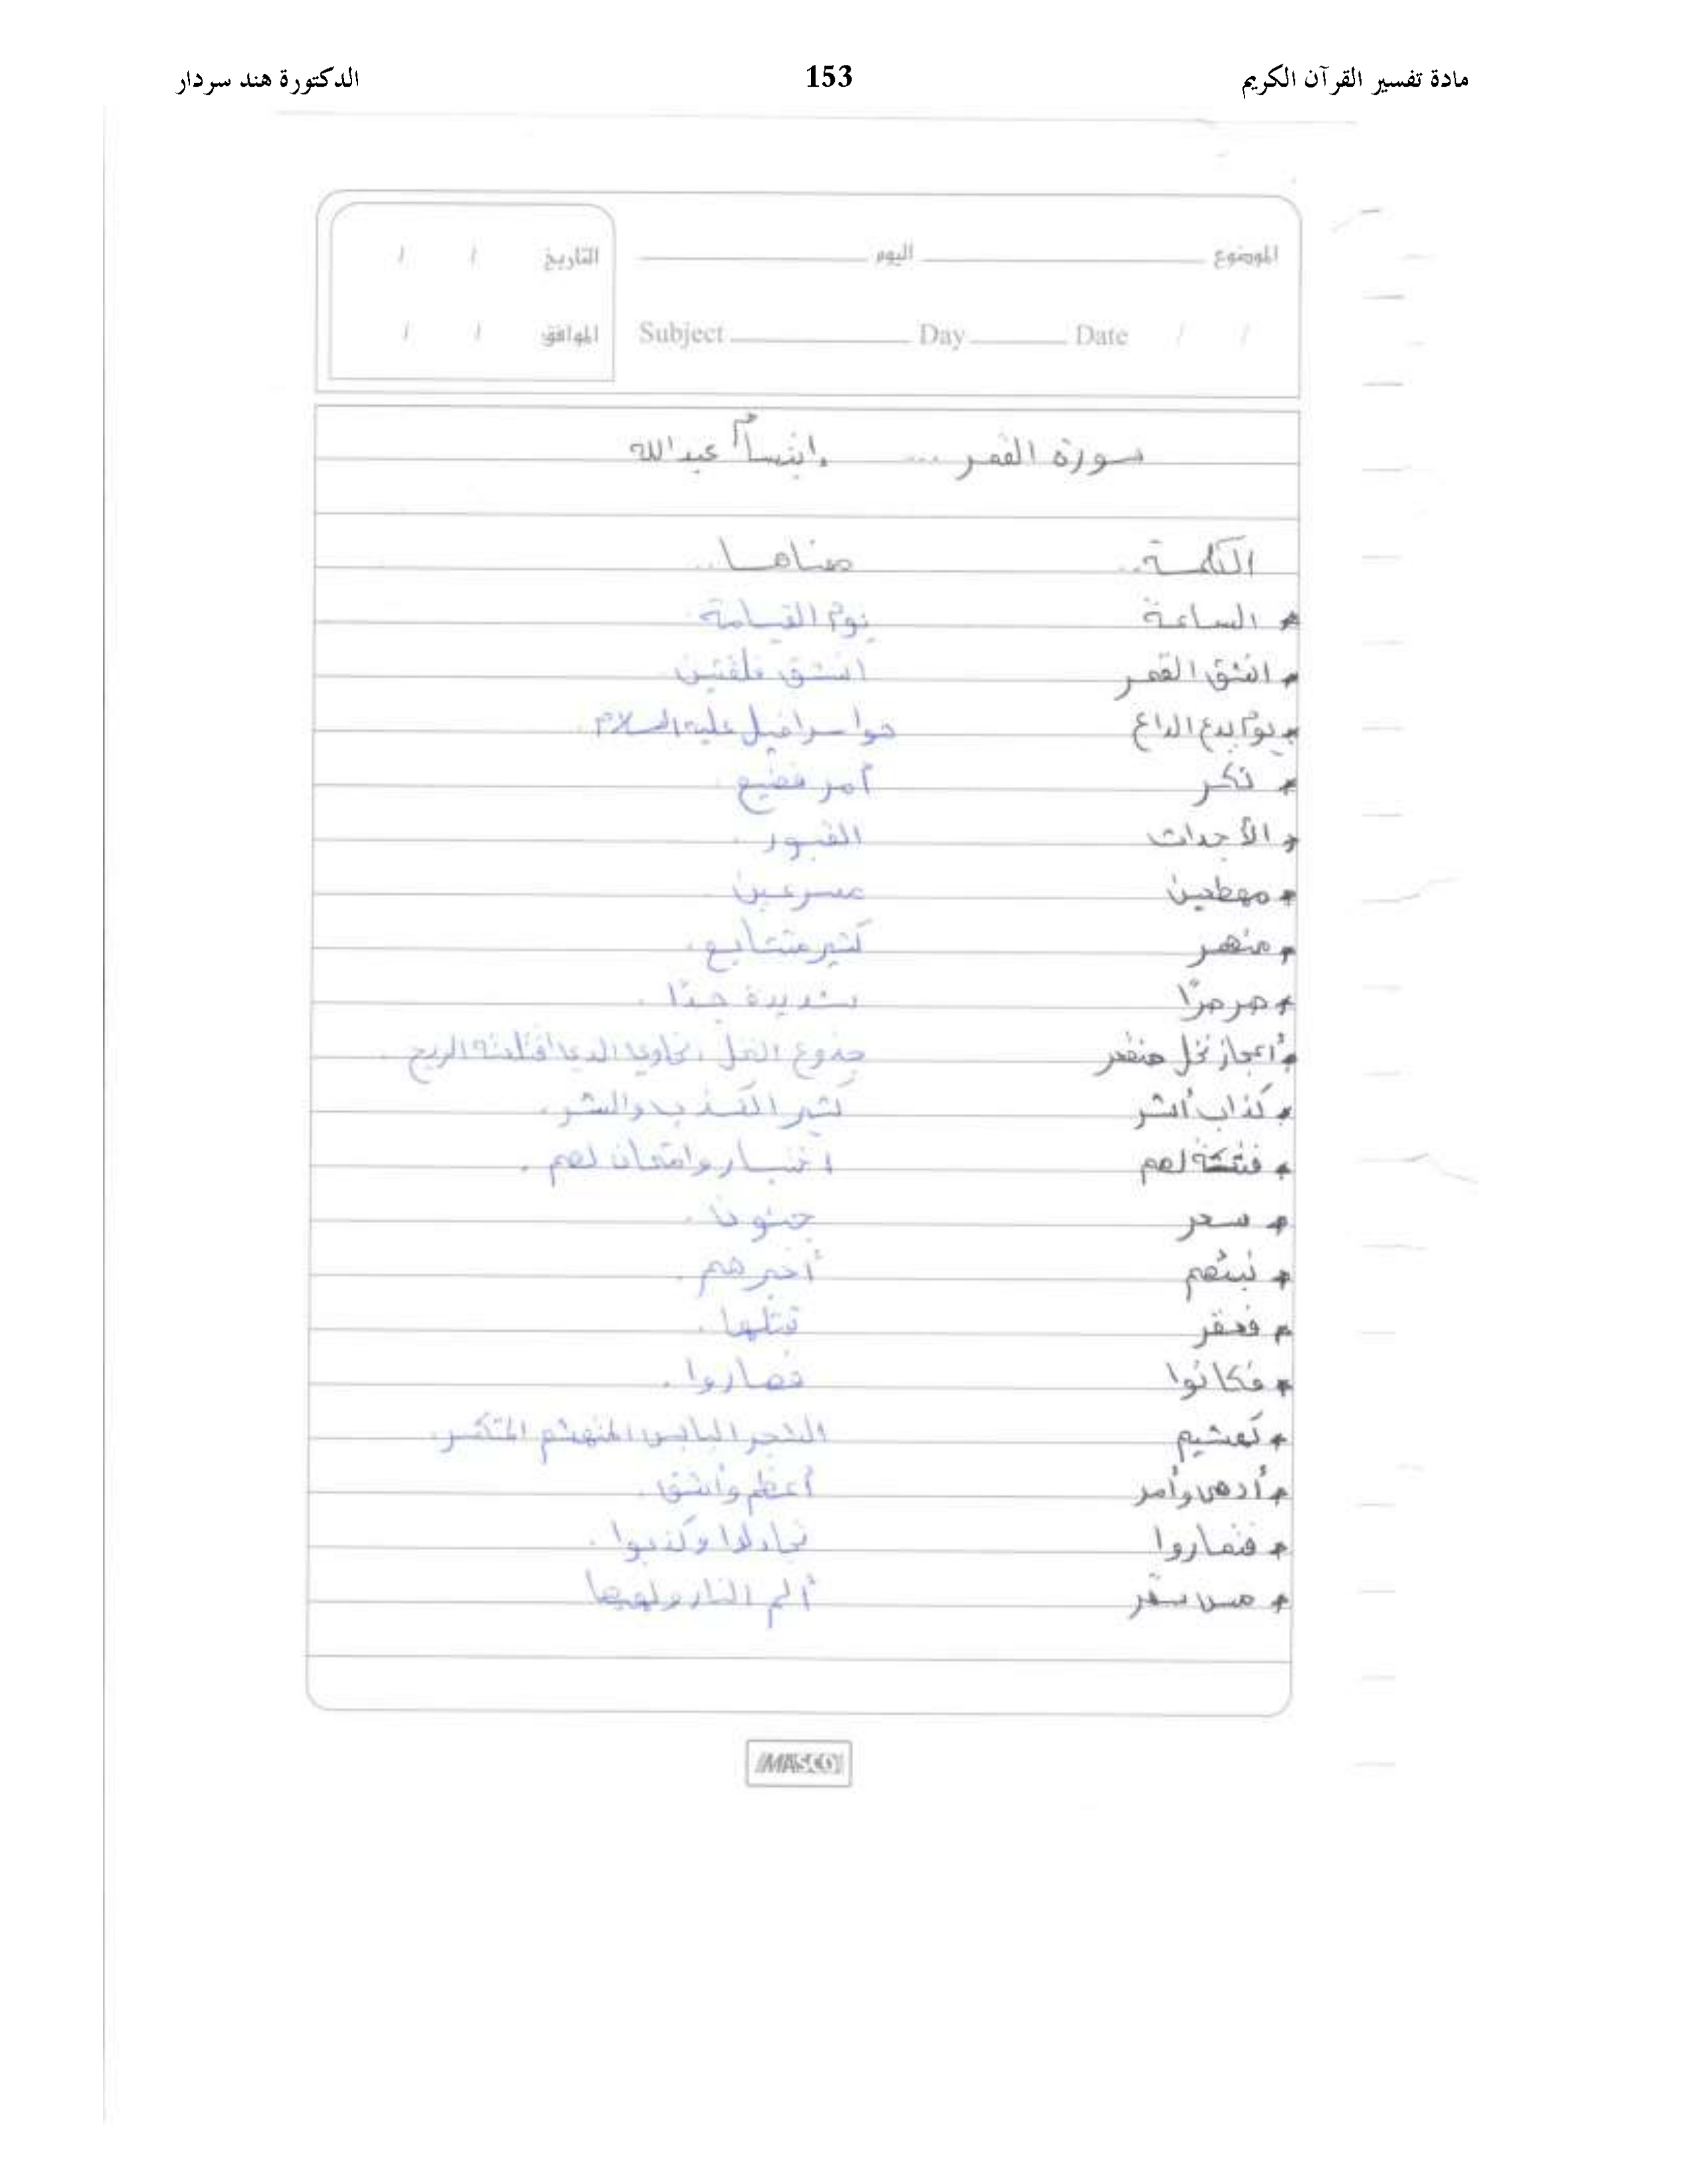 مادة تفسير القرآن الكريم 153 الدكتورة هند سردار
الموضوع اليوم التاريخ / /
Subject Day Date / / الموافق / /
سورة القمر ... عبدالله
الكلمة.. معناها..
الساعة يوم القيامة.
انشق القمر انشق فلقتين
يوم يدع الداع هو إسرافيل عليه السلام.
نكر أمر فضيع.
الأجداث القبور.
مهطعين مسرعين.
منهمر كثير متتابع.
صرصرًا شديدة جدًا.
أعجاز نخل منقعر جذوع النخل الريح.
كذاب أشر كثير الكذب والشر.
فتنة لهم اختبار وامتحان لهم.
سعر جنونا.
نبئهم أخبرهم.
فعقر قتلها.
فكانوا فصاروا.
كهشيم الشجر اليابس المنهشم المتكسر.
أدهى وأمر أعظم وأشق.
فتماروا تجادلوا وكذبوا.
مس سقر ألم النار ولهيبها
MASCO